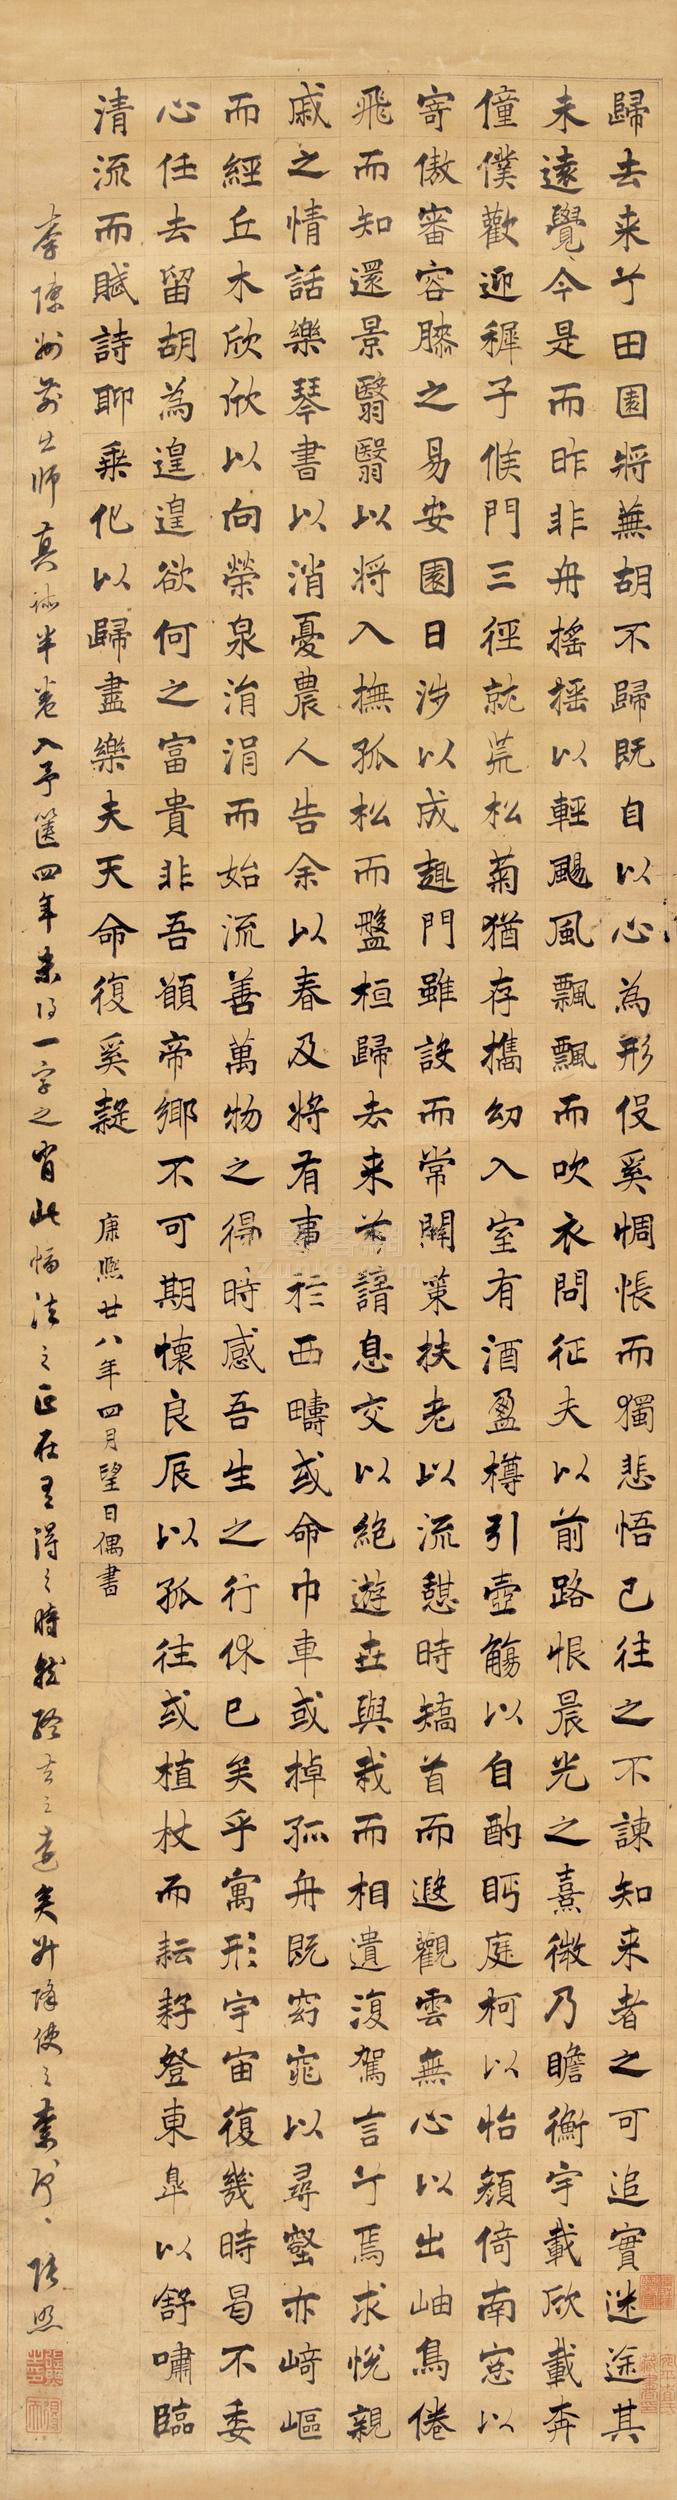 歸去来兮田園將蕪胡不歸既自以心為形役奚惆悵而獨悲悟已往之不諫知来者之可追實迷途其
未遠覺今是而昨非舟搖搖以輕颺風飄飄而吹衣問征夫以前路恨晨光之熹微乃瞻衡宇載欣載奔
僮僕歡迎稺子候門三徑就荒松菊猶存攜幼入室有酒盈樽引壺觴以自酌眄庭柯以怡顏倚南窓以
寄傲審容膝之易安園日涉以成趣門雖設而常關策扶老以流憩時矯首而遐觀雲無心以出岫鳥倦
飛而知還景翳翳以將入撫孤松而盤桓歸去来兮請息交以絶遊世與我而相遺復駕言兮焉求悅親
戚之情話樂琴書以消憂農人告余以春及將有事於西疇或命巾車或棹孤舟既窈窕以尋壑亦崎嶇
而經丘木欣欣以向榮泉涓涓而始流善萬物之得時感吾生之行休已矣乎寓形宇宙復幾時曷不委
心任去留胡為遑遑欲何之富貴非吾願帝鄉不可期懷良辰以孤往或植杖而耘耔登東皐以舒嘯臨
清流而賦詩聊乘化以歸盡樂夫天命復奚疑 康熙廿八年四月望日偶書
陳州前出師真跡半卷入予篋四年未得一字之肖此幅法之正在有得之時 張照
Zunke.com